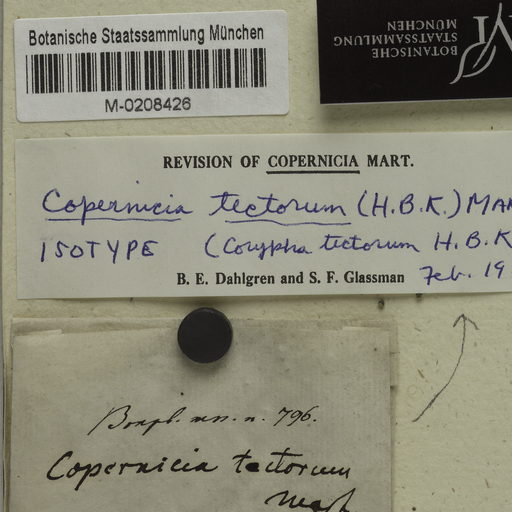 Botanische Staatssammlung München
M-0208426
BOTANISCHE
STAATSSAMMLUNG
MÜNCHEN
REVISION OF COPERNICIA MART.
Copernicia tectorum (H.B.K.) MAR
ISOTYPE (Corypha tectorum H.B.K
B. E. Dahlgren and S. F. Glassman Feb. 19
Bonpl. mss. n. 796.
Copernicia tectorum
Mart